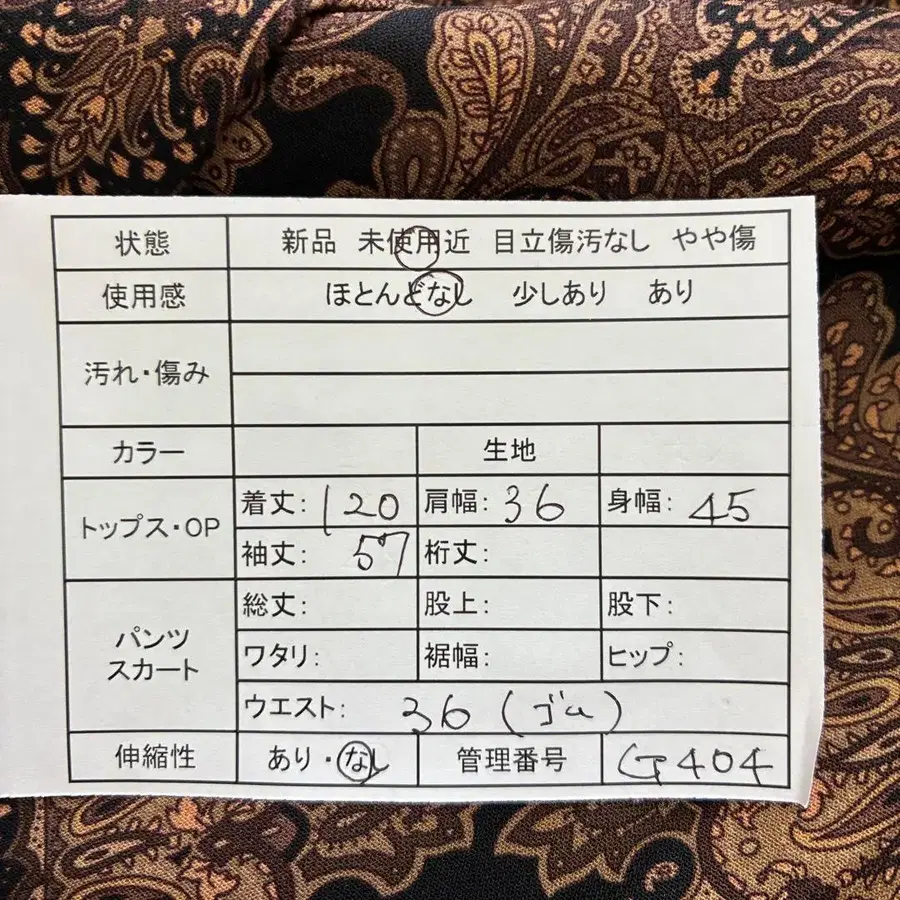 状態 新品 未使用近 目立傷汚なし やや傷
使用感 ほとんどなし 少しあり あり
汚れ・傷み
カラー 生地
トップス・OP
着丈: 120 肩幅: 36 身幅: 45
袖丈: 57 裄丈:
パンツ
スカート
総丈: 股上: 股下:
ワタリ: 裾幅: ヒップ:
ウエスト: 36 (ゴム)
伸縮性 あり・なし 管理番号 G404